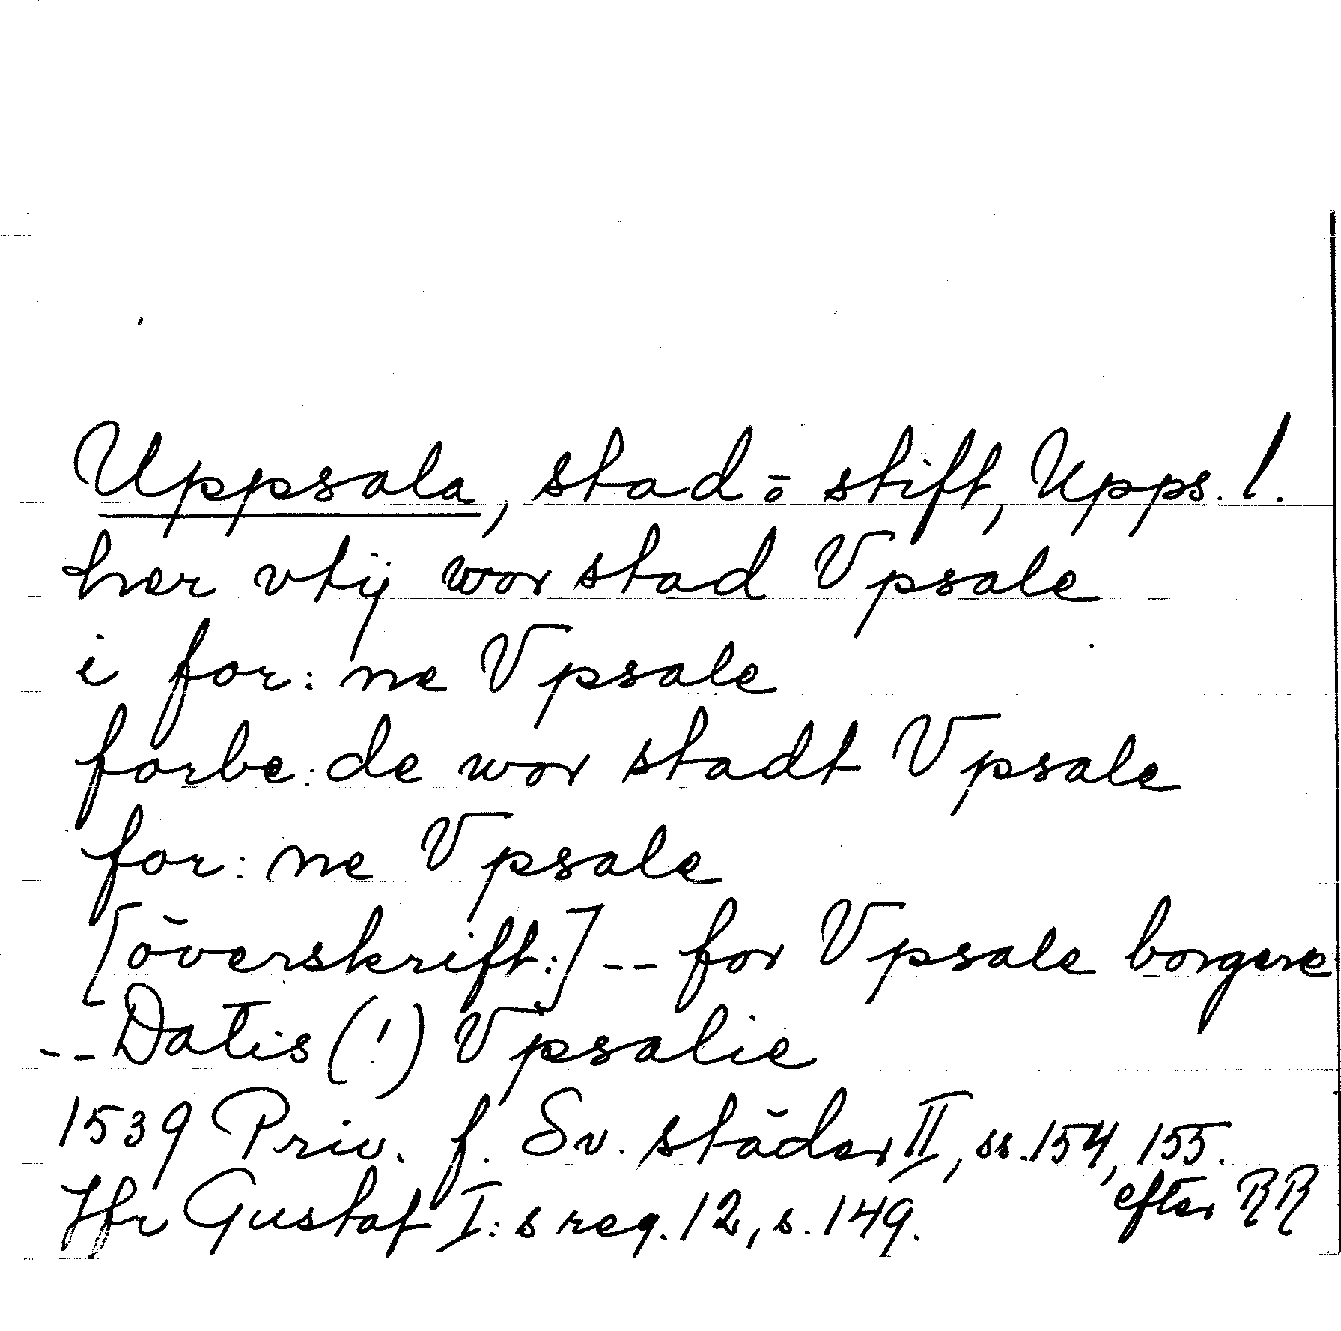 Uppsala, stad o stift, Upps. l.
her vtij wor stad Vpsale
i for: ne Vpsale
forbe: de wor stadt Vpsale
for: ne Vpsale
[överskrift:] -- for Vpsale borgere
-- Datis (!) Vpsalie
1539 Priv. f. Sv. städer II, ss. 154, 155.
efter RR
Jfr Gustaf I:s reg. 12, s. 149.